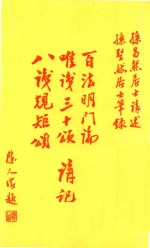 孫昌然居士講述
孫聖然居士筆錄
百法明門論
唯識三十頌 講記
八識規矩頌
陈人深题